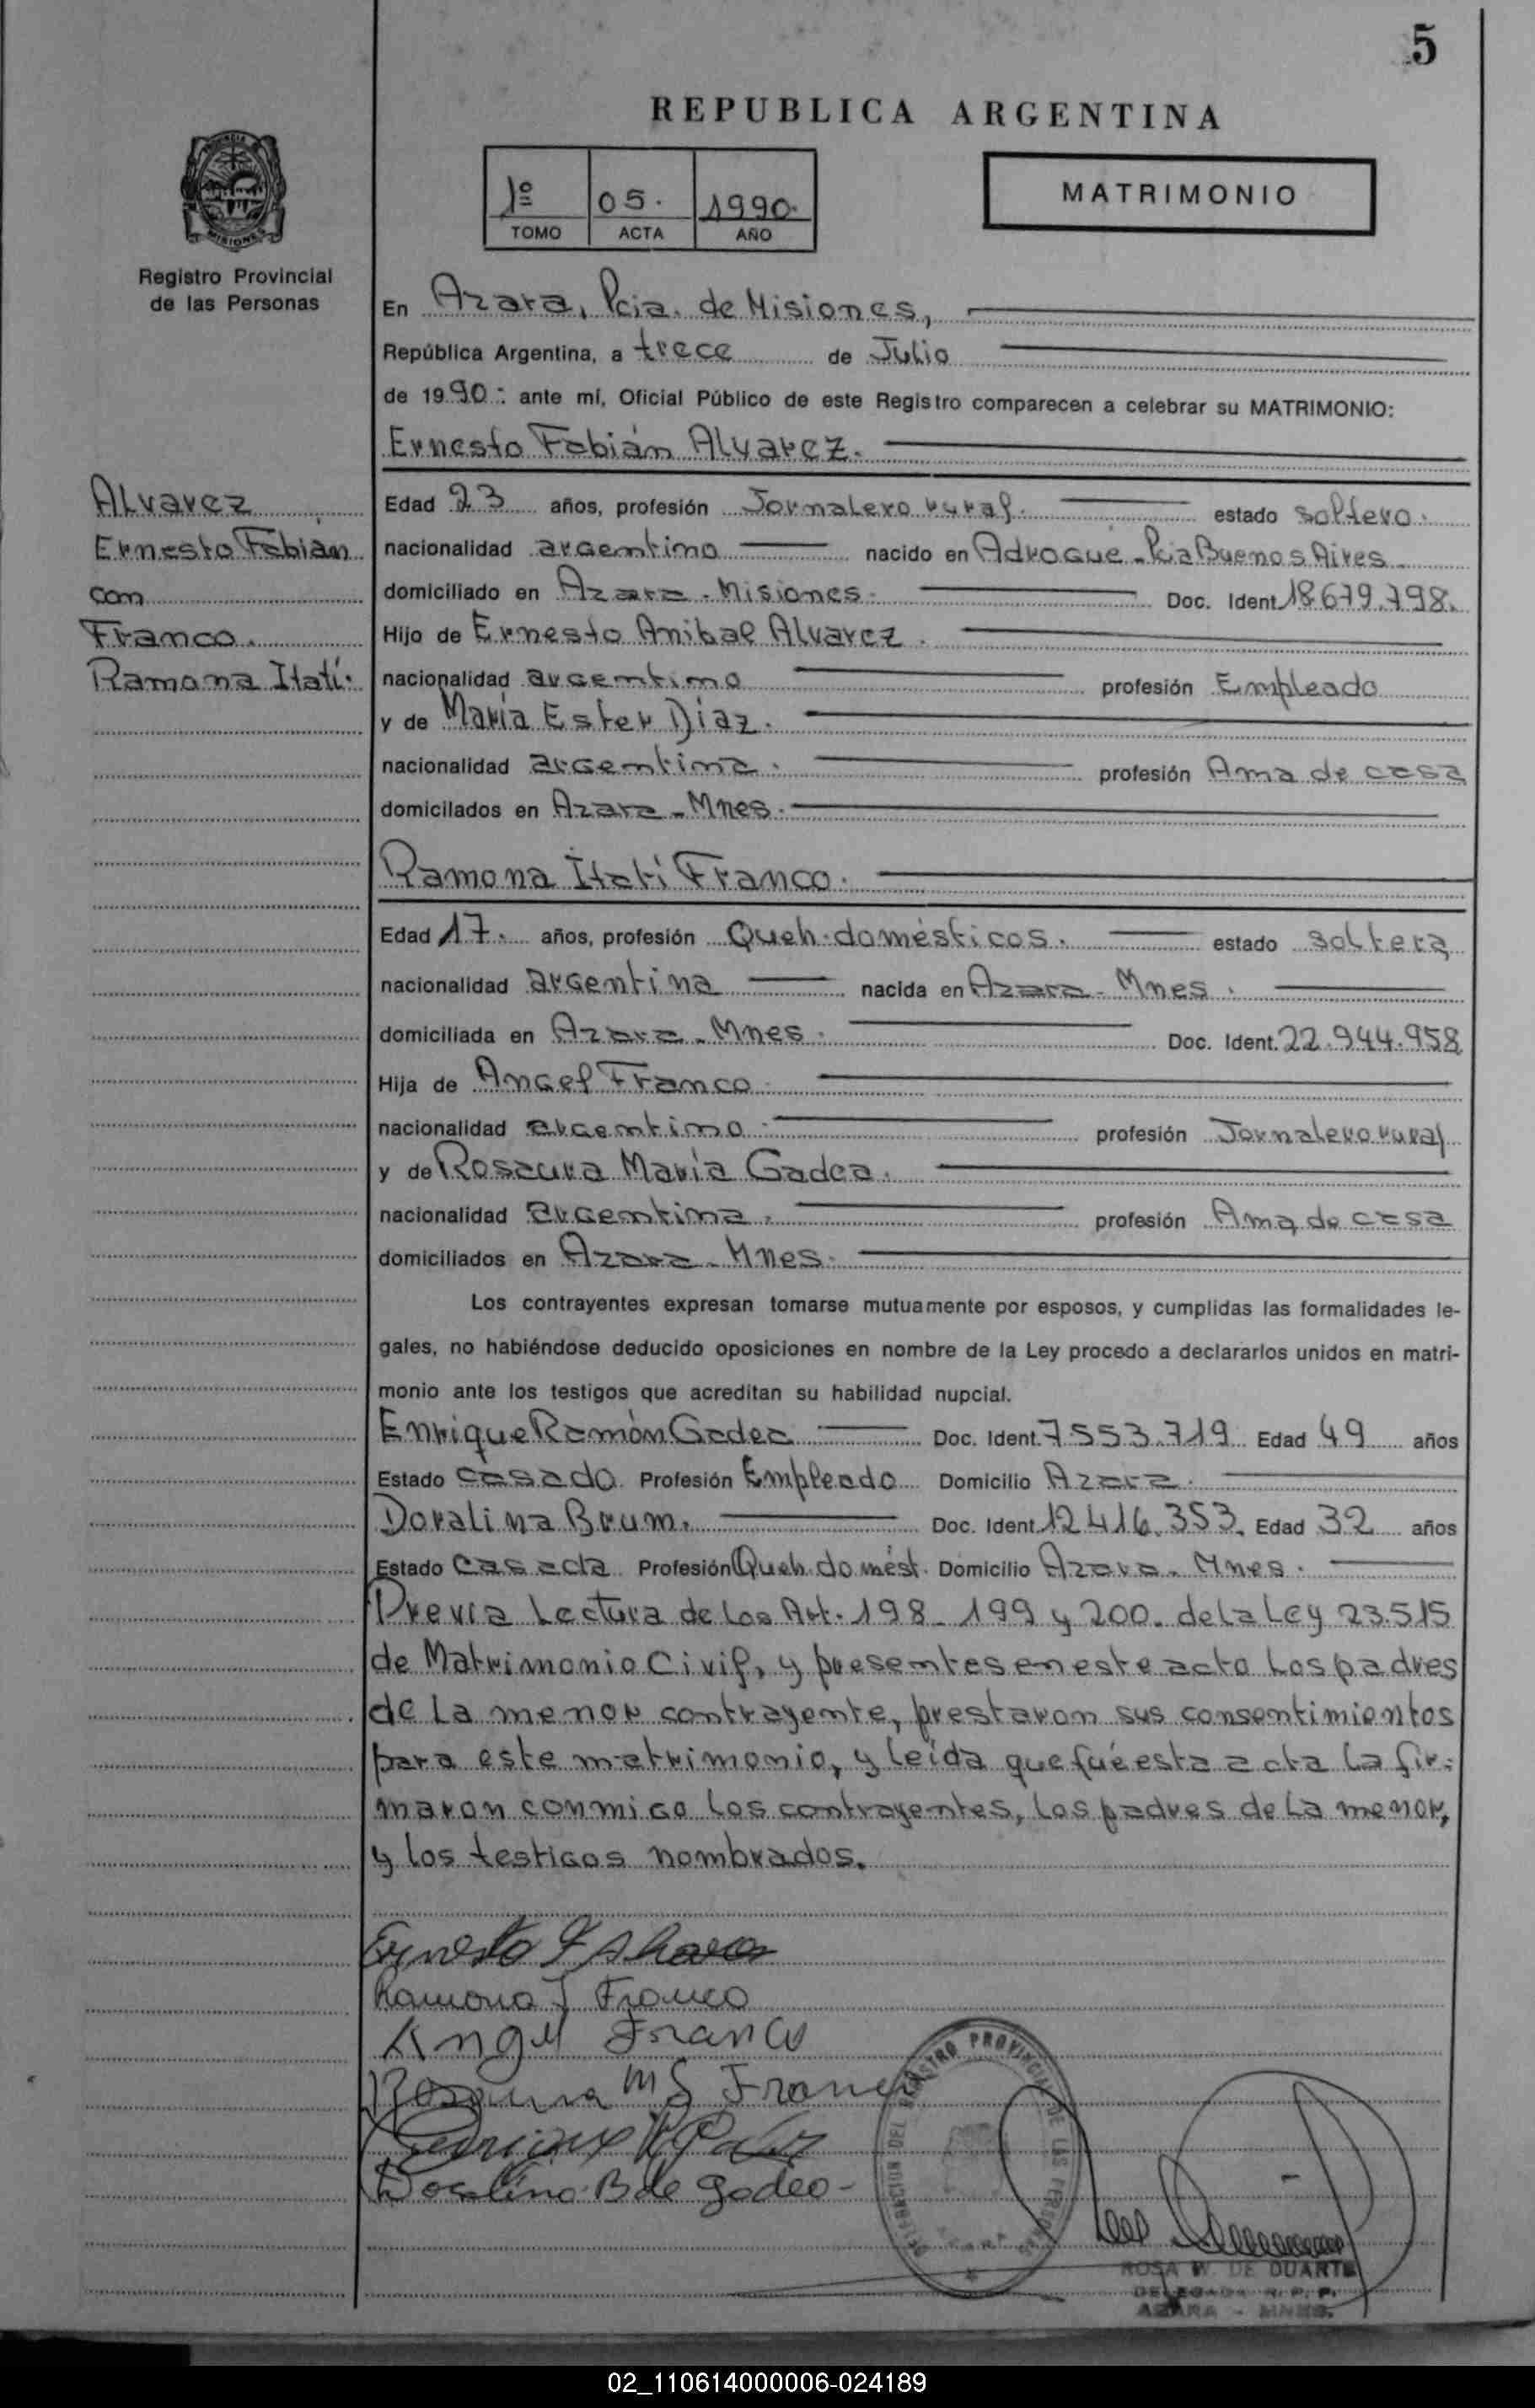 5
REPUBLICA ARGENTINA
1º 05. 1990.
TOMO ACTA AÑO
MATRIMONIO
MISIONES
Registro Provincial
de las Personas
En Azara, Pcia. de Misiones,
República Argentina, a trece de Julio
de 1990.: ante mí, Oficial Público de este Registro comparecen a celebrar su MATRIMONIO:
Ernesto Fabián Alvarez.
Alvarez
Ernesto Fabián
con
Franco.
Ramona Itatí.
Edad 23 años, profesión Jornalero rural. estado soltero.
nacionalidad argentino nacido en Adrogué - Pcia Buenos Aires
domiciliado en Azara - Misiones. Doc. Ident. 18.679.798.
Hijo de Ernesto Anibal Alvarez.
nacionalidad argentino profesión Empleado
y de María Ester Díaz.
nacionalidad argentina. profesión Ama de casa
domicilados en Azara - Mnes.
Ramona Itatí Franco.
Edad 17. años, profesión Queh. domésticos. estado soltera
nacionalidad argentina nacida en Azara - Mnes.
domiciliada en Azara - Mnes. Doc. Ident. 22.944.958
Hija de Angel Franco.
nacionalidad argentino. profesión Jornalero rural
y de Rosaura María Gadea.
nacionalidad argentina. profesión Ama de casa
domiciliados en Azara - Mnes.
Los contrayentes expresan tomarse mutuamente por esposos, y cumplidas las formalidades le-
gales, no habiéndose deducido oposiciones en nombre de la Ley procedo a declararlos unidos en matri-
monio ante los testigos que acreditan su habilidad nupcial.
Enrique Ramón Gadea Doc. Ident. 7553.719 Edad 49 años
Estado casado Profesión Empleado Domicilio Azara.
Doralina Brum. Doc. Ident. 12416.353. Edad 32 años
Estado casada Profesión Queh. domést. Domicilio Azara - Mnes.
Previa Lectura de los Art. 198 - 199 y 200. de la Ley 23.515
de Matrimonio Civil, y presentes en este acto los padres
de la menor contrayente, prestaron sus consentimientos
para este matrimonio, y leída que fué esta acta la fir-
maron conmigo los contrayentes, los padres de la menor,
y los testigos nombrados.
Ernesto F Alvarez
Ramona I Franco
Angel Franco
Rosaura M Franco
Doralina B de Gadea -
REGISTRO PROVINCIAL DE LAS PERSONAS
ROSA W. DE DUARTE
DELEGADA R. P. P.
AZARA - MNES.
02_110614000006-024189